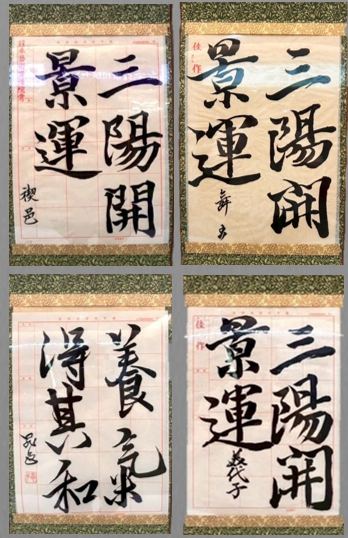 三陽開
景運
禊邑
三陽開
景運
佳作
養氣
得其和
三陽開
景運
美代子
佳作